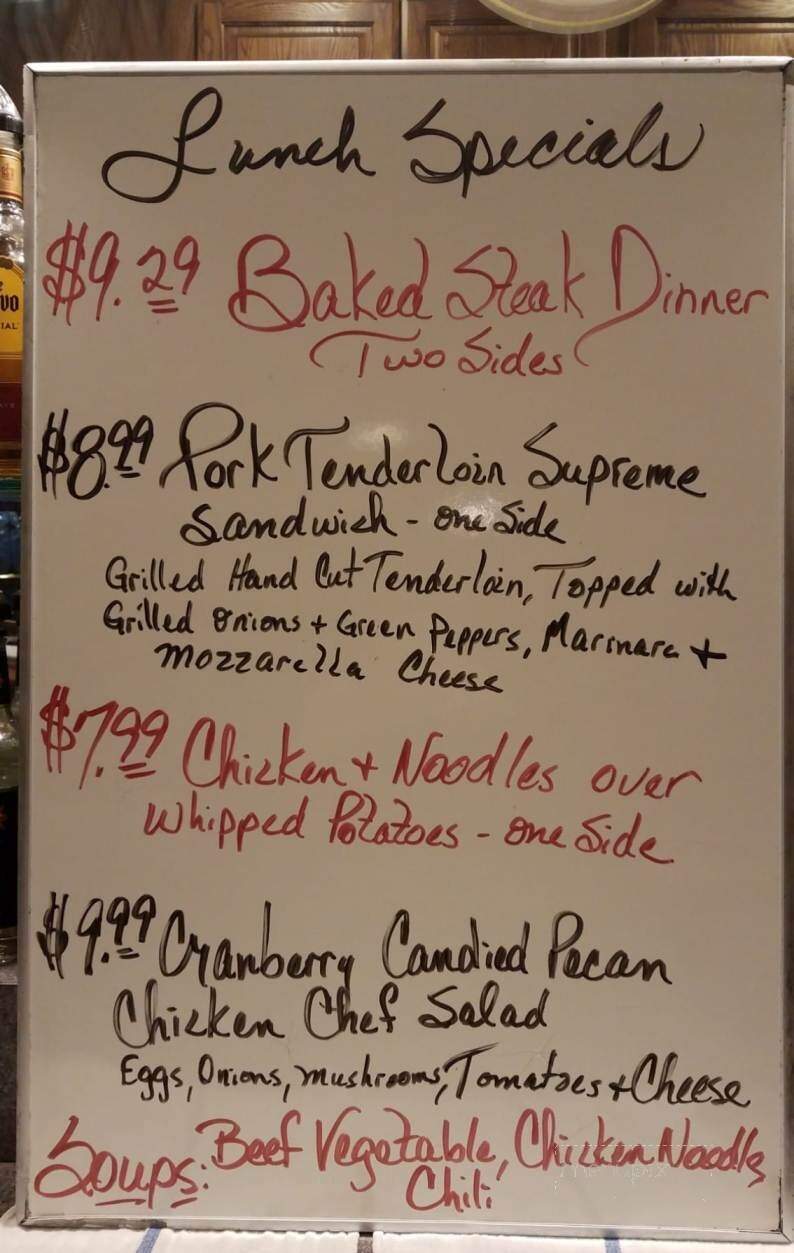 Lunch Specials
$9.29 Baked Steak Dinner
Two Sides
$8.99 Pork Tenderloin Supreme
Sandwich - one Side
Grilled Hand Cut Tenderloin, Topped with
Grilled Onions + Green Peppers, Marinara +
Mozzarella Cheese
$7.99 Chicken + Noodles over
Whipped Potatoes - one Side
$9.99 Cranberry Candied Pecan
Chicken Chef Salad
Eggs, Onions, Mushrooms, Tomatoes + Cheese
Soups: Beef Vegetable, Chicken Noodle
Chili